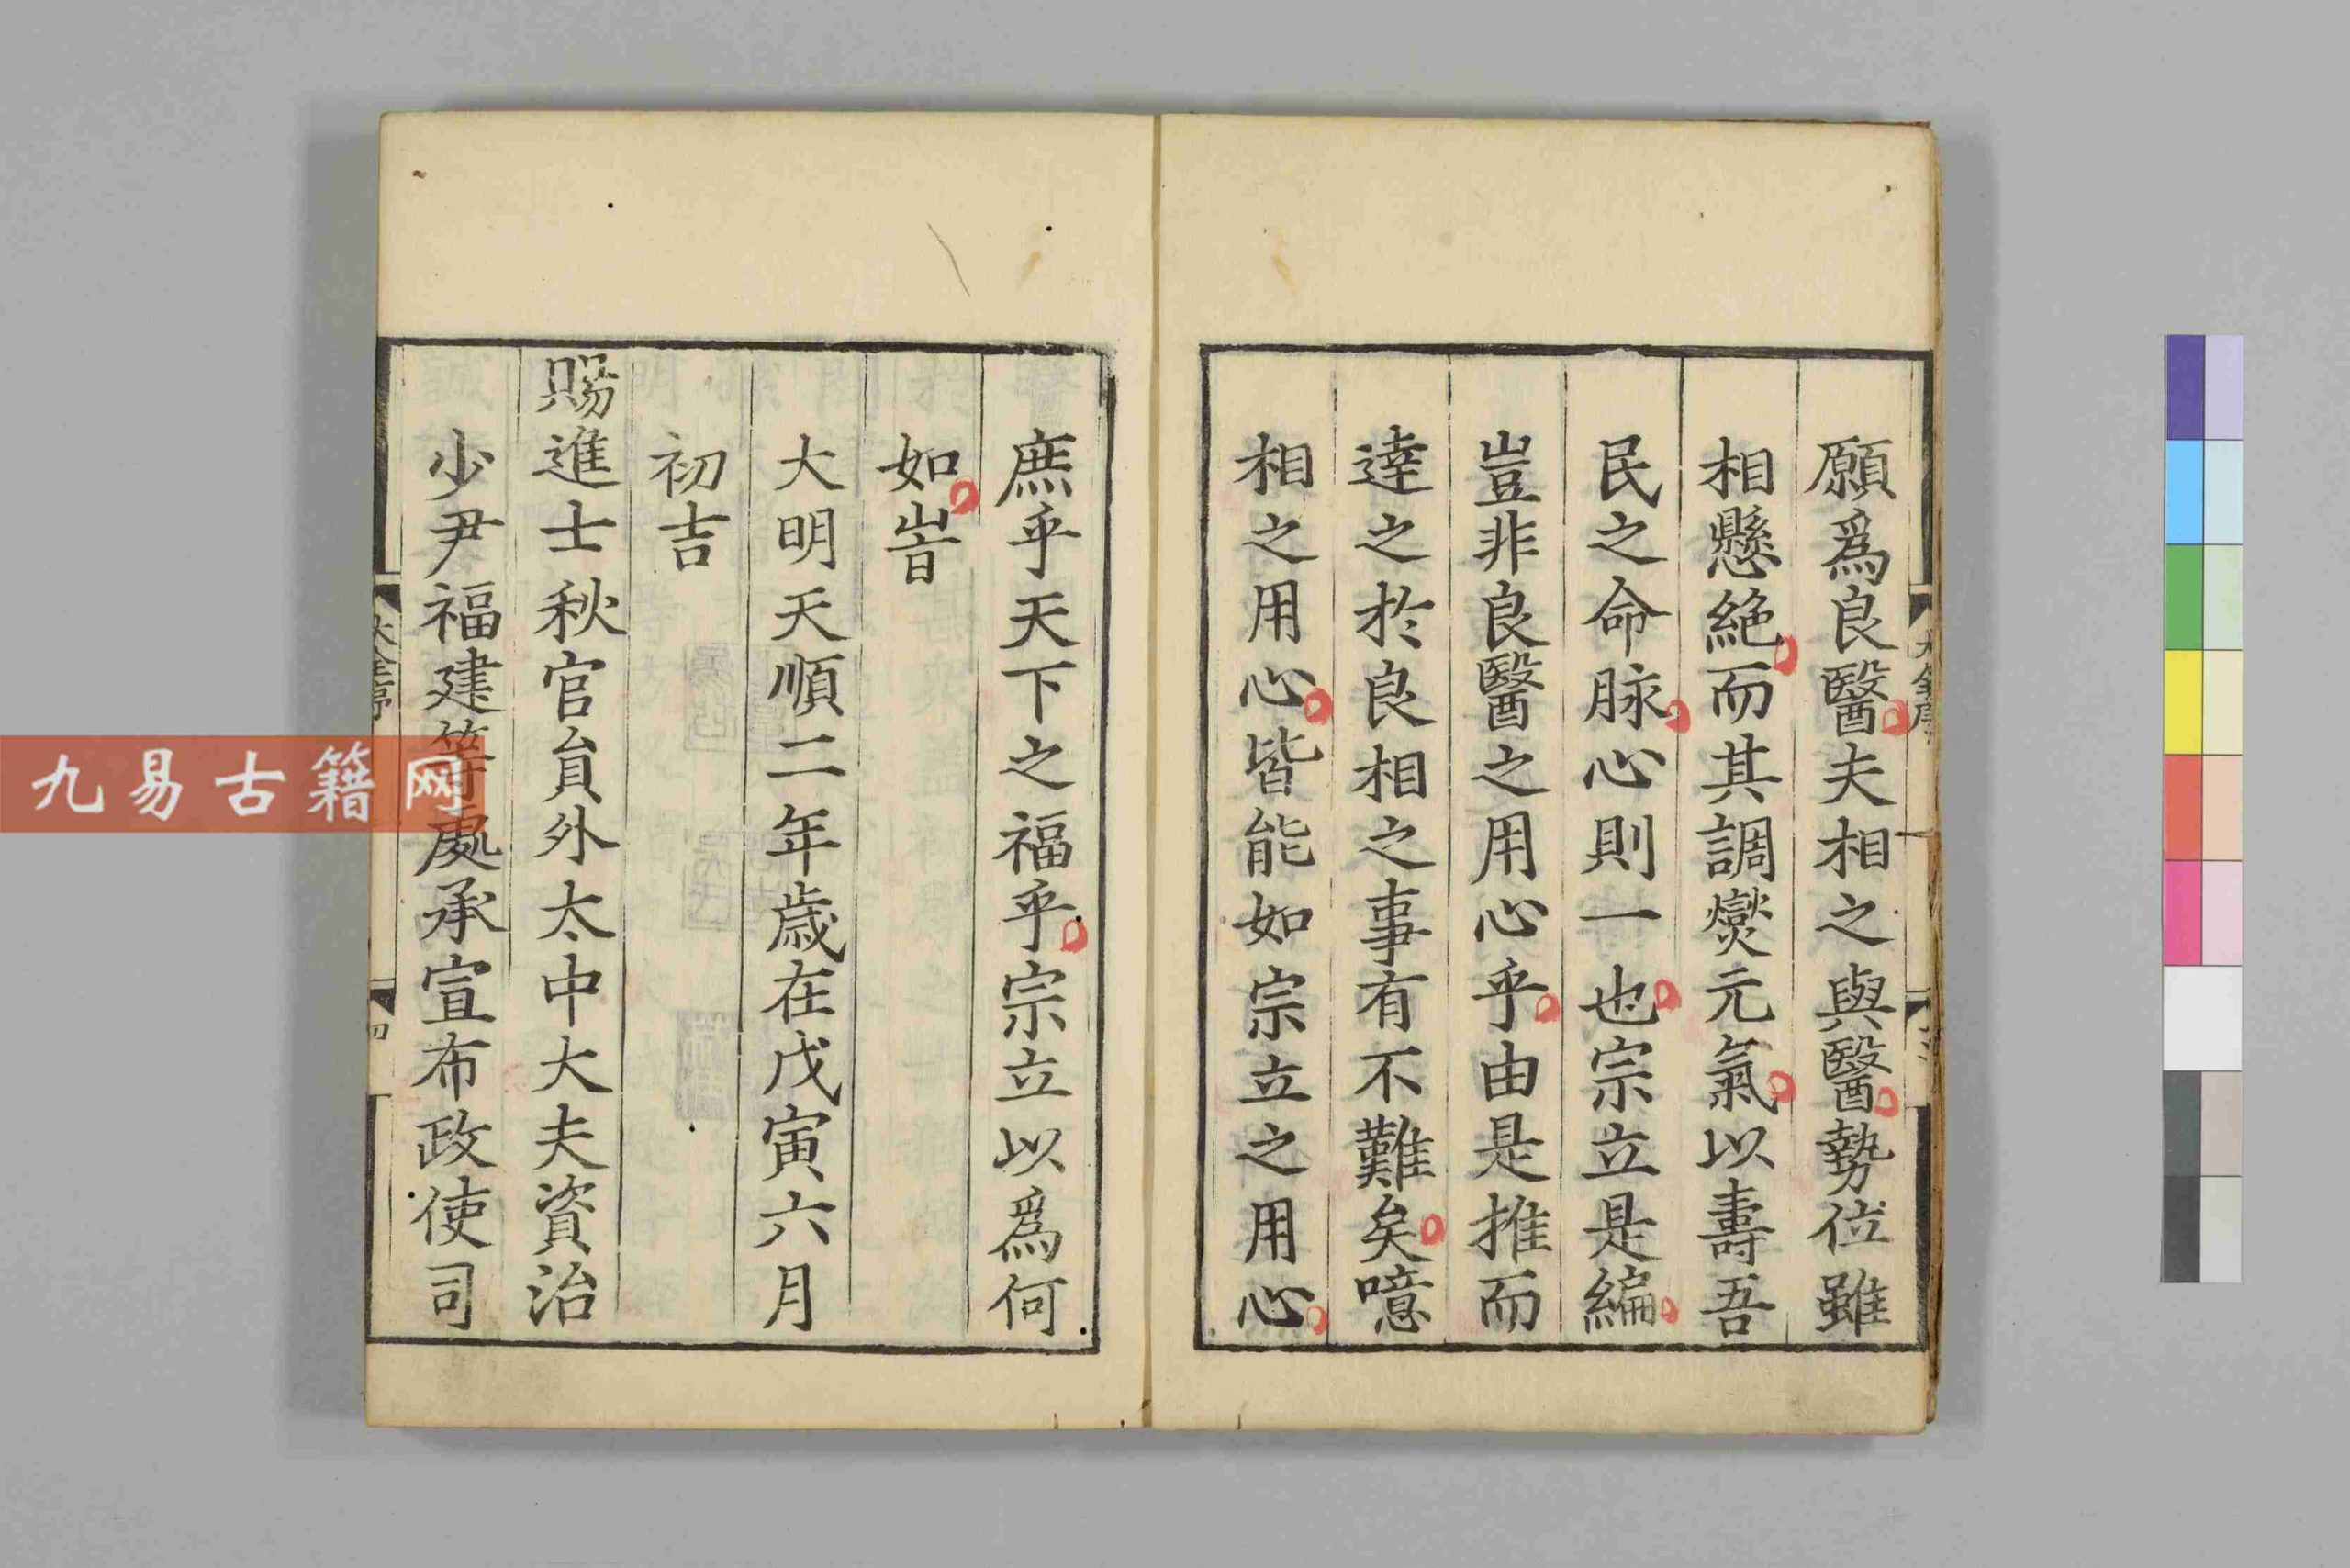 願爲良醫夫相之與醫勢位雖
相懸絶而其調燮元氣以壽吾
民之命脉心則一也宗立是編
豈非良醫之用心乎由是推而
達之於良相之事有不難矣噫
相之用心皆能如宗立之用心
庶乎天下之福乎宗立以爲何
如旹
大明天順二年歲在戊寅六月
初吉
賜進士秋官員外太中大夫資治
少尹福建等處承宣布政使司
九易古籍网